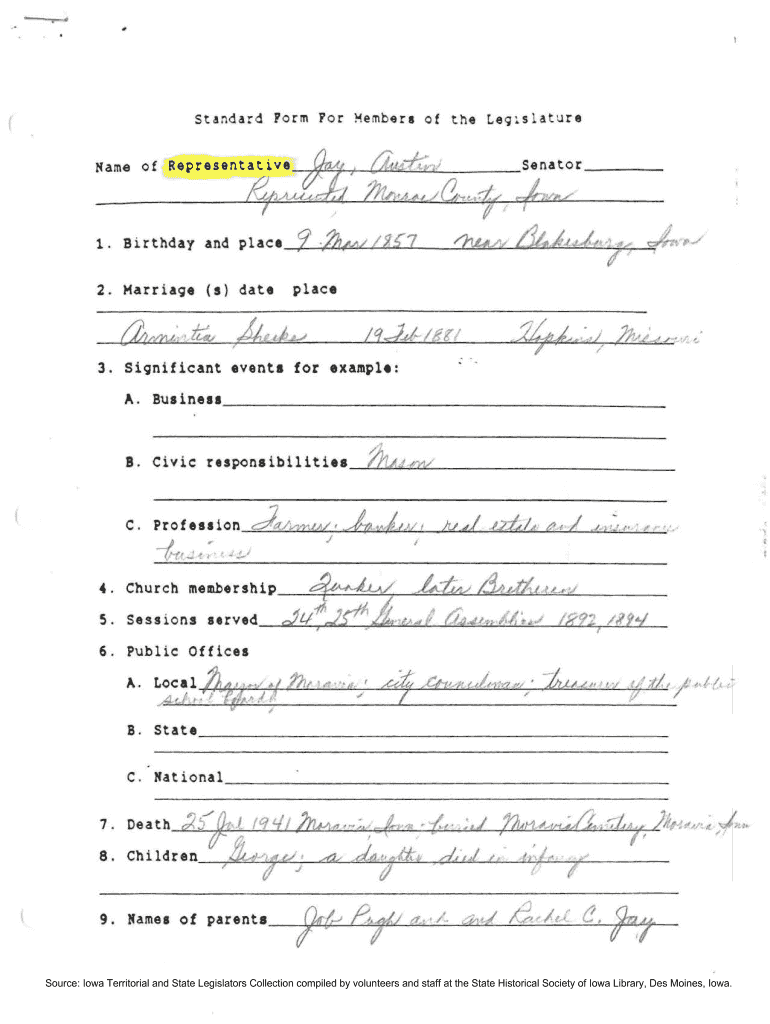 Standard Form For Members of the Legislature
Name of Representative Jay, Austin Senator
Represented Monroe County, Iowa
1. Birthday and place 9 Mar 1857 near Blakesburg, Iowa
2. Marriage (s) date place
Armintia Sheeks 19 Feb 1881 Hopkins, Missouri
3. Significant events for example:
A. Business
B. Civic responsibilities Mason
C. Profession Farmer; banker; real estate and insurance
business
4. Church membership Quaker, later Bretheren
5. Sessions served 24th, 25th General Assemblies 1892, 1894
6. Public Offices
A. Local Mayor of Moravia; city councilman; treasurer of the public
school board
B. State
C. National
7. Death 25 Jul 1941 Moravia, Iowa; buried Moravia Cemetery, Moravia, Iowa
8. Children George; a daughter died in infancy
9. Names of parents Job Pugh and and Rachel C. Jay
Source: Iowa Territorial and State Legislators Collection compiled by volunteers and staff at the State Historical Society of Iowa Library, Des Moines, Iowa.